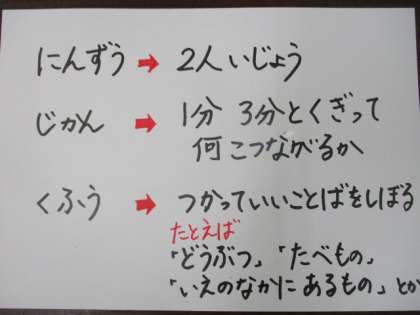 にんずう → 2人いじょう
じかん → 1分 3分とくぎって
何こつながるか
くふう → つかっていいことばをしぼる
たとえば
「どうぶつ」「たべもの」
「いえのなかにあるもの」とか